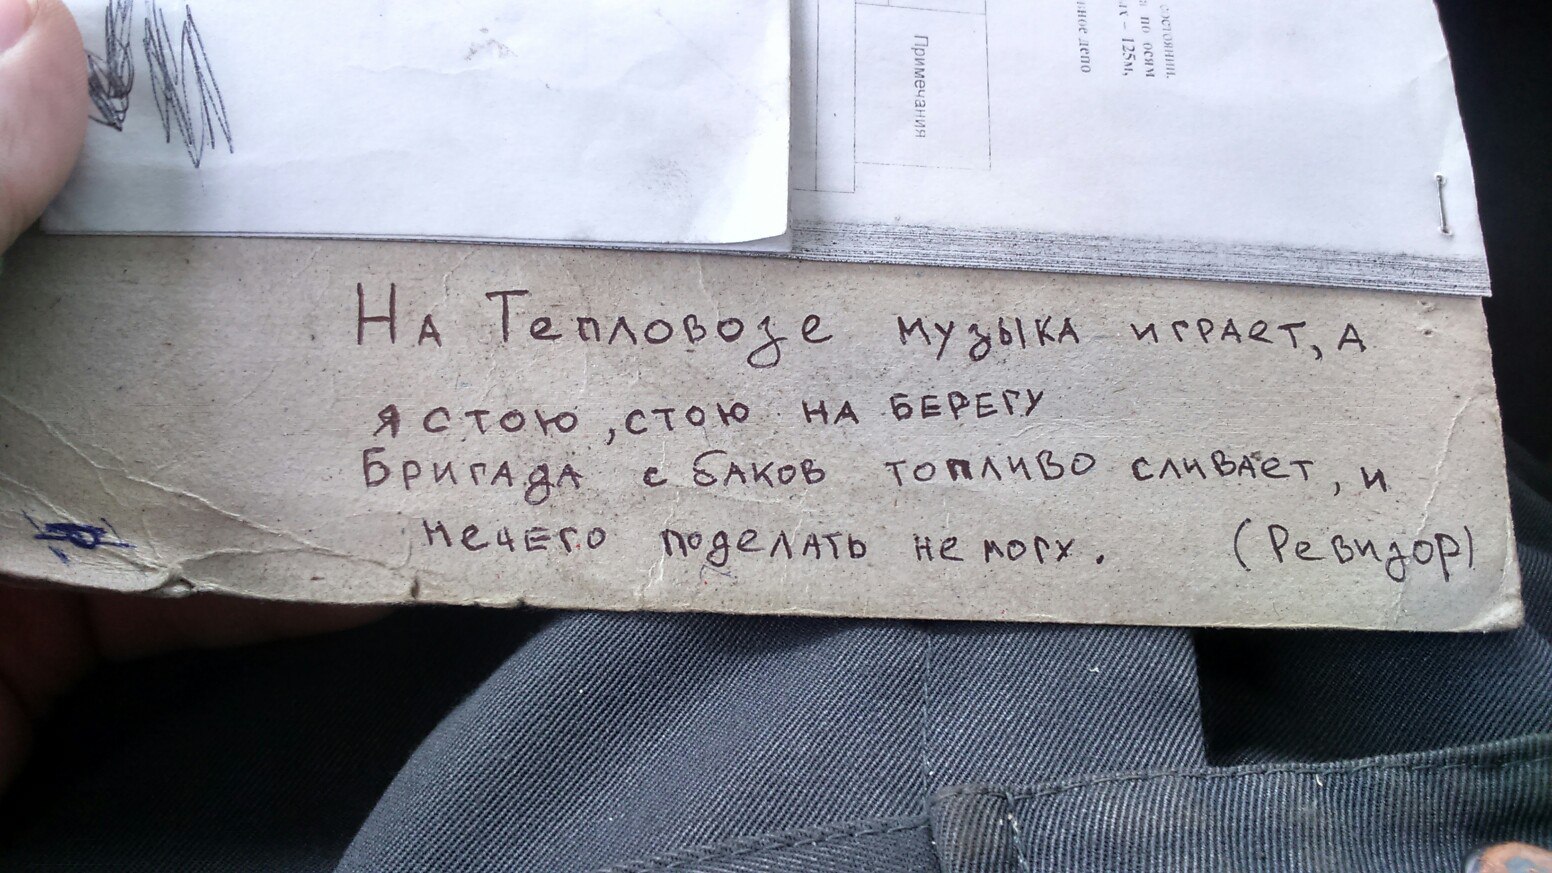 состоянии.
по осям
– 125м,
депо
Примечания
На Тепловозе музыка играет, а
я стою, стою на берегу
Бригада с баков топливо сливает, и
нечего поделать не могу.
(Ревизор)